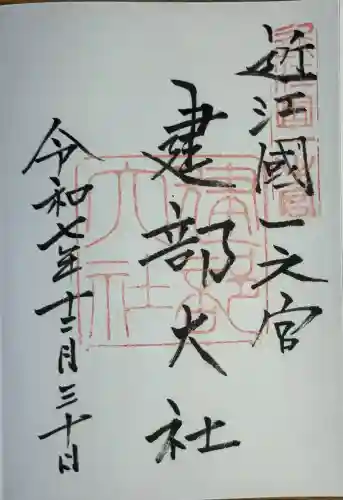 近江國一之宮
建部大社
令和七年十二月三十日
建部大社